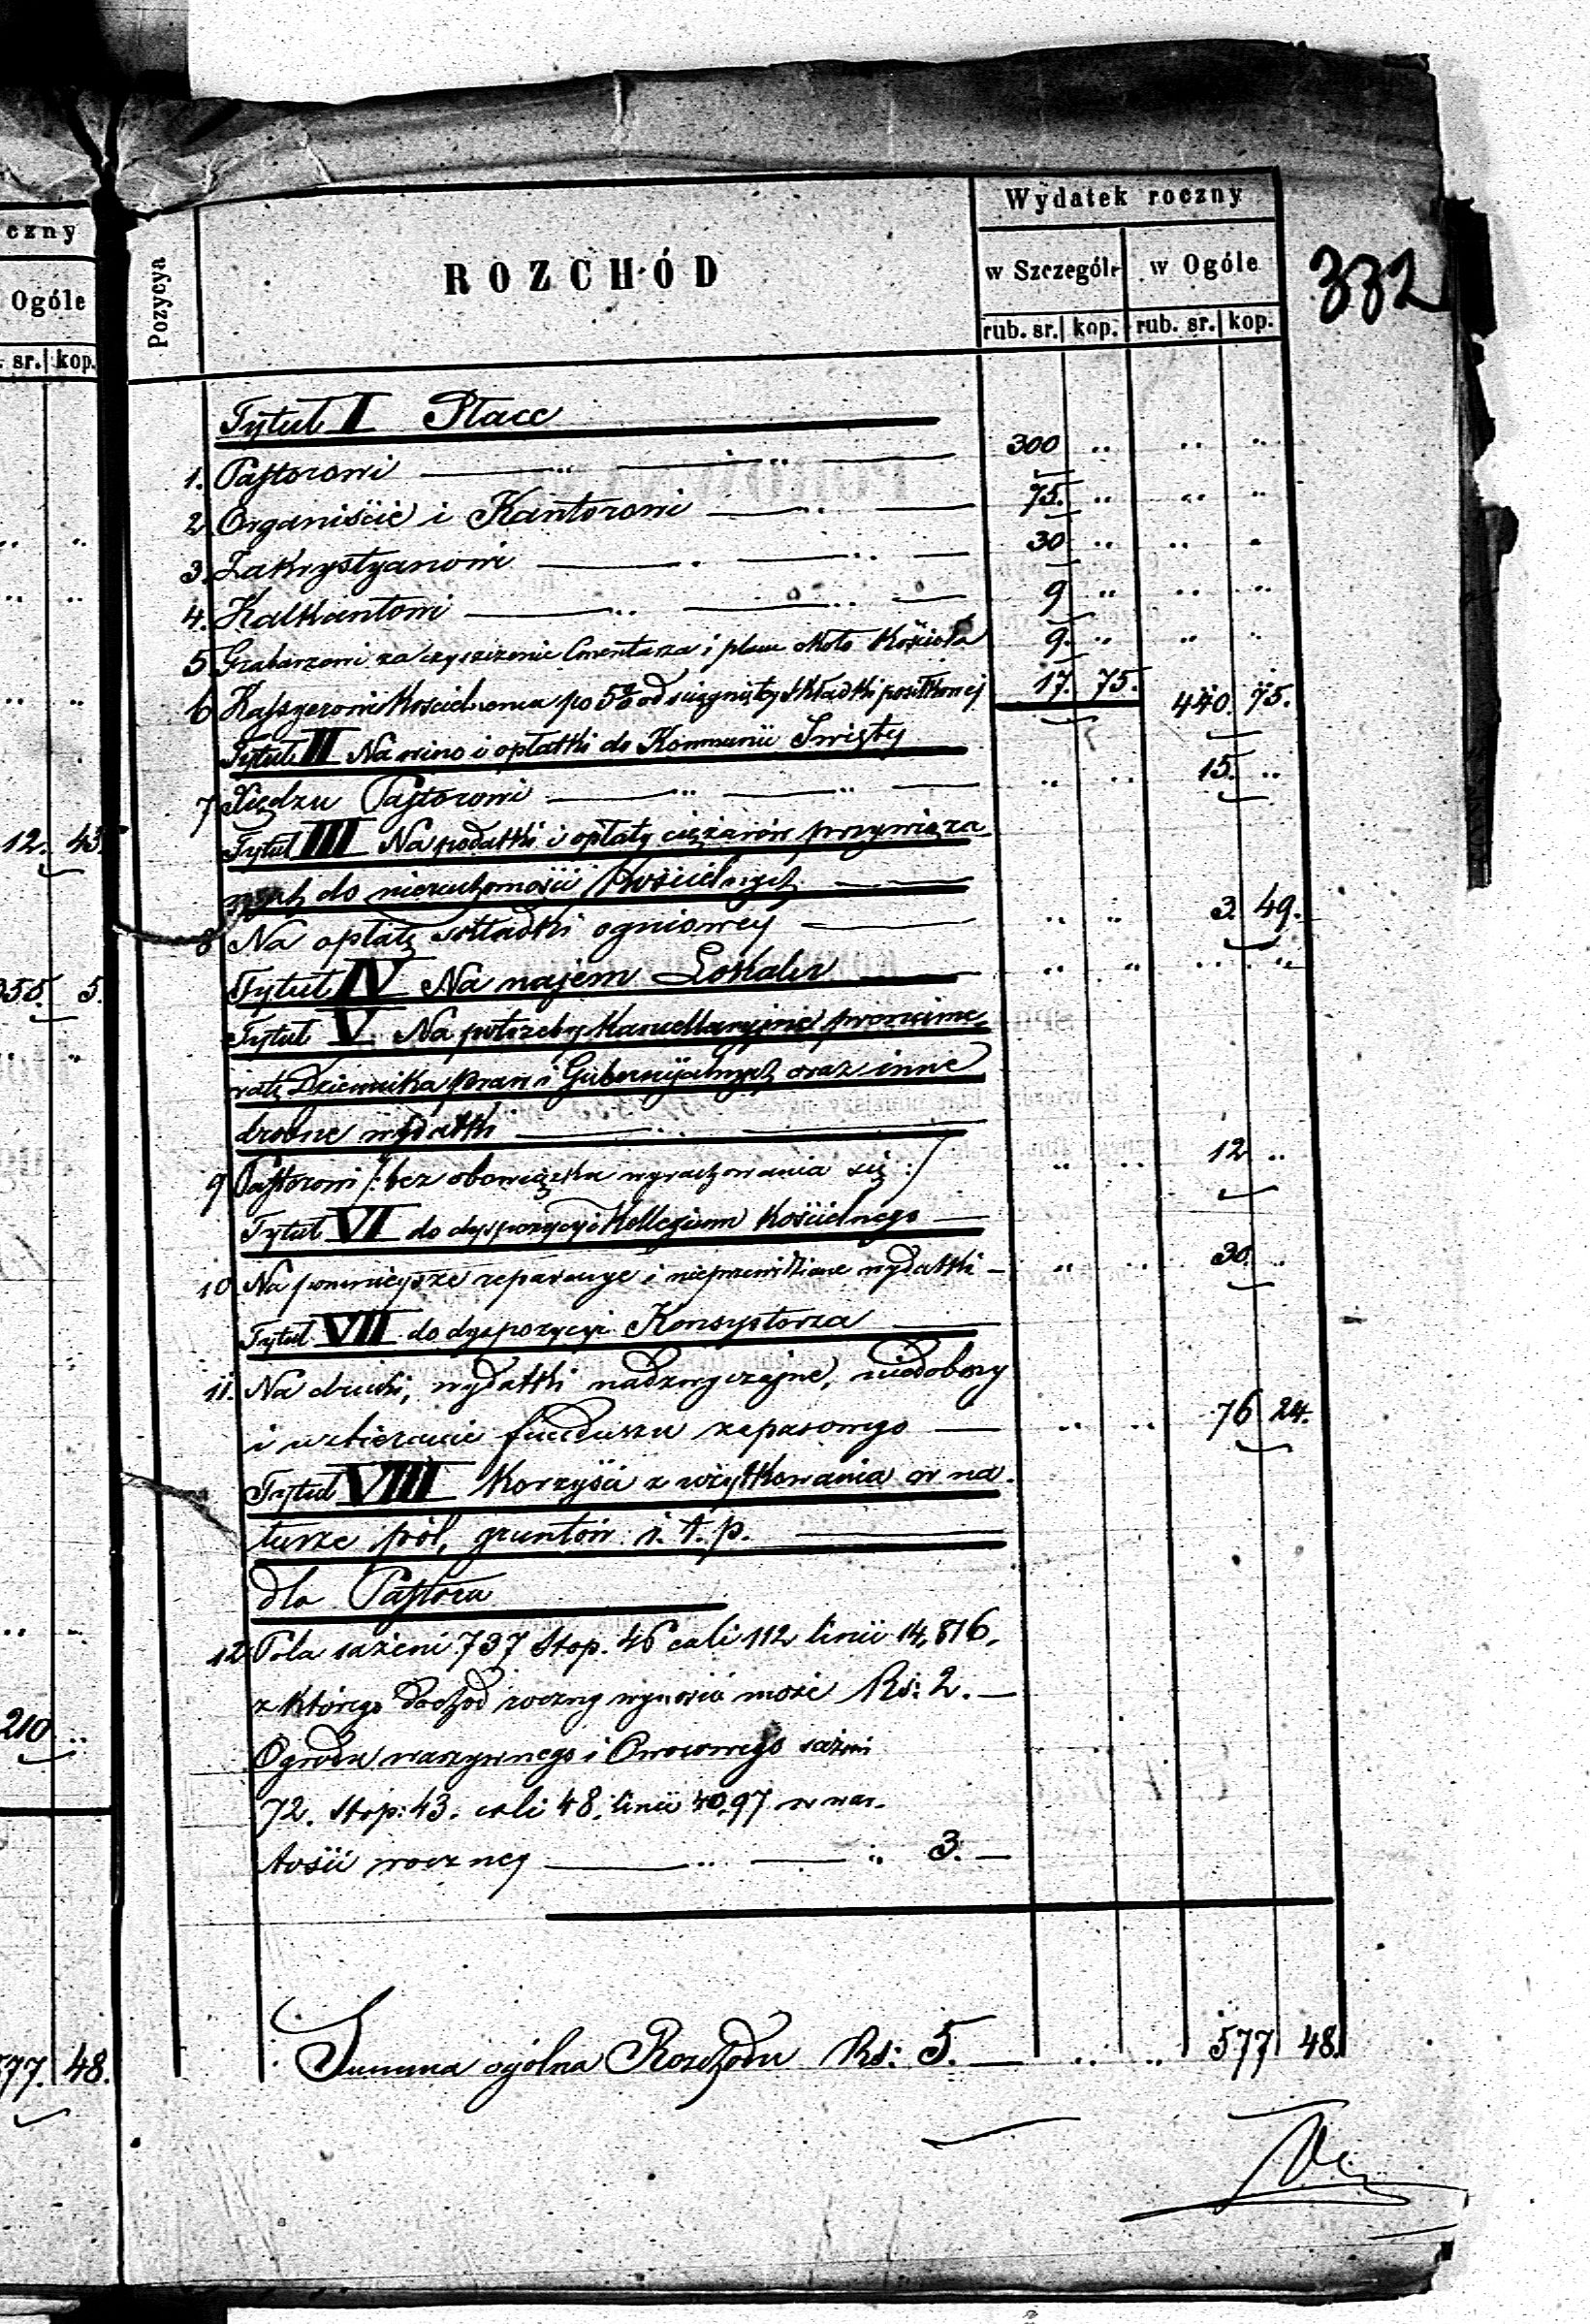 czny
Ogóle
sr. kop.
12. 43.
355. 5.
210 ..
577. 48.
332
Pozycya ROZCHÓD Wydatek roczny
w Szczegól. w Ogóle
rub. sr. kop. rub. sr. kop.
Tytuł I Płace
1. Pastorowi 300 .. .. ..
2 Organiście i Kantorowi 75. .. .. ..
3. Zakrystyanowi 30 .. .. ..
4. Kalkantowi 9 .. .. ..
5 Grabarzowi za czyszczenie Cmentarza i placu około Kościoła 9. .. .. ..
6 Kassyerowi Kościelnemu po 5% od ściągnięty Składki posiłkowej 17. 75. 440. 75.
Tytuł II Na wino i opłatki do Kommunii Święty
7 Xiędzu Pastorowi .. .. 15. ..
Tytuł III Na podatki i opłaty ciężarów przywiąza
nych do nieruchomości Kościelnych
8 Na opłatę składki ogniowey .. .. 3. 49.
Tytuł IV Na najem Lokalu .. .. .. ..
Tytuł V. Na potrzeby Kancellaryjne prenume-
ratę Dziennika praw i Gubernijalnych oraz inne
drobne wydatki
9 Pastorowi /: bez obowiązku wyrachowania się :/ .. .. 12 ..
Tytuł VI do dyspozycyi Kollegium Kościelnego
10 Na pomniejsze reparacye i nieprzewidziane wydatki .. .. 30. ..
Tytuł VII do dyspozycyi Konsystorza
11. Na druki, wydatki nadzwyczajne, niedobory
i uzbieranie funduszu zapasowego .. .. 76 24.
Tytuł VIII Korzyści z użytkowania w na-
turze pól, gruntów i. t. p.
dla Pastora
12 Pola sażeni 737 stop. 46 cali 112 linii 14,816.
z którego dochód roczny wynosić może Rs: 2. —
Ogrodu warzywnego i Owocowego sażeni
72. stop: 43. cali 48. linii 40,97 w war-
tości roczney .. .. 3. —
Summa ogólna Rozchodu Rs: 5. — .. .. 577 48.